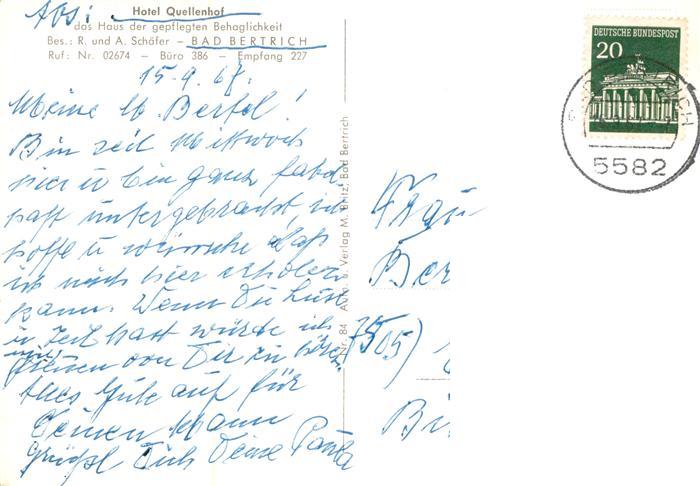 Abs:
Hotel Quellenhof
das Haus der gepflegten Behaglichkeit
Bes.: R. und A. Schäfer – BAD BERTRICH
Ruf: Nr. 02674 – Büro 386 – Empfang 227
15.9.67.
Meine lb. Bertel!
Bin seit Mittwoch
hier u bin ganz fabel
haft untergebracht, ich
hoffe u wünsche daß
ich mich hier erholen
kann. Wenn Du Lust
u Zeit hast würde ich
mich freuen von Dir zu hören.
Alles Gute auch für
Deinen Mann
grüßt Dich Deine Paula
Nr. 84 Auto. u. Verlag M. Britz, Bad Bertrich
DEUTSCHE BUNDESPOST
20
5582
Frau
Ber
(7505)